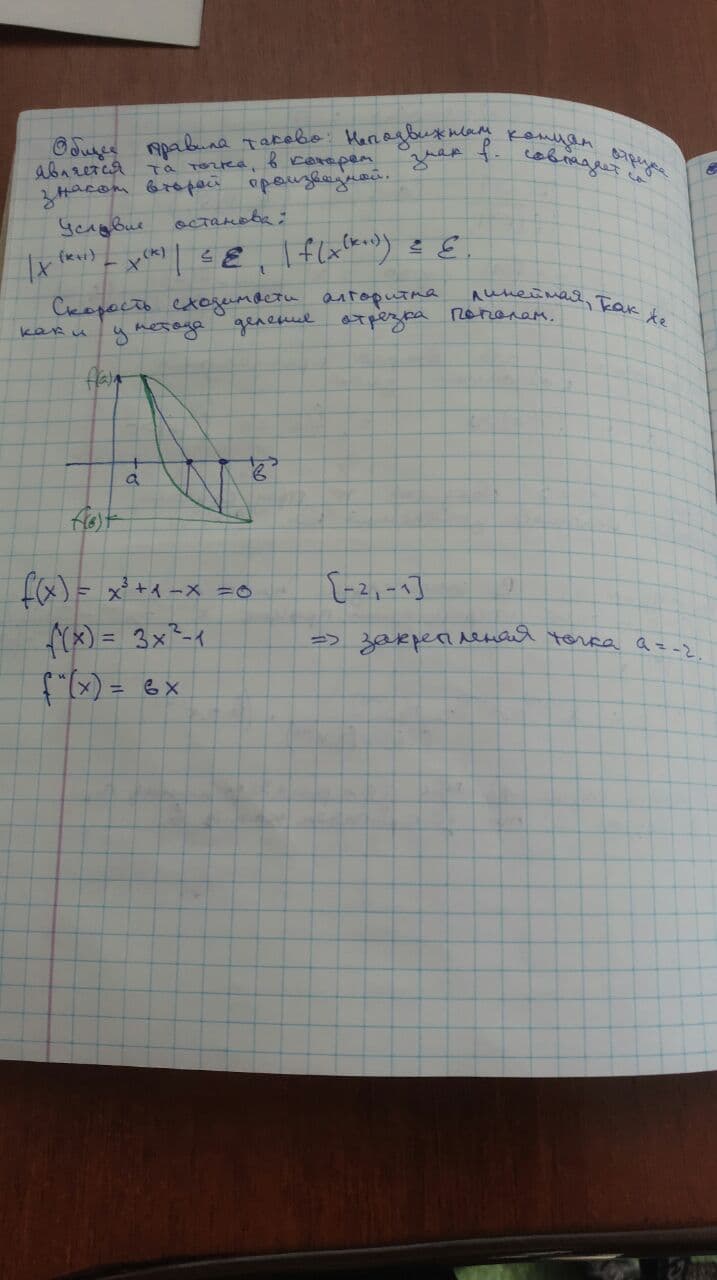 Общее правила таково: Неподвижным концом отрезка
является та точка, в котором знак f. совпадает со
знаком второй производной.
Условие останова:
|x^(k+1) - x^(k)| ≤ ε, |f(x^(k+1)) ≤ ε.
Скорость сходимости алгоритма линейная, так же
как и у метода деление отрезка пополам.
f(a)
a
в
f(в)
f(x) = x³+1-x =0 [-2,-1]
f'(x) = 3x²-1 => закрепленая точка a=-2.
f"(x) = 6x